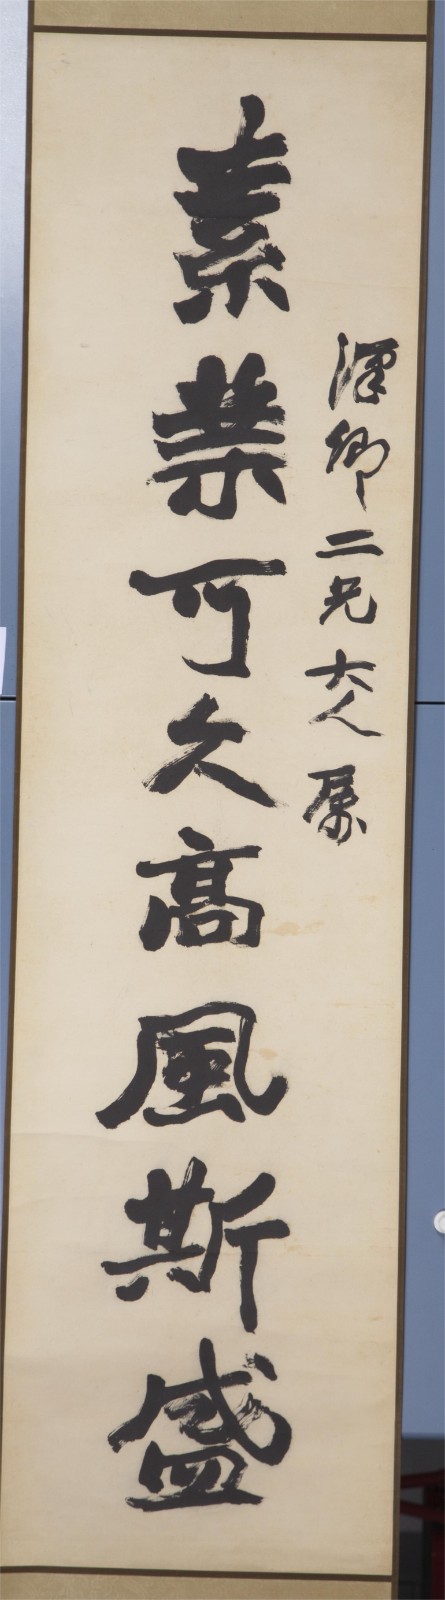 澤卿二兄大人属
素業可久高風斯盛